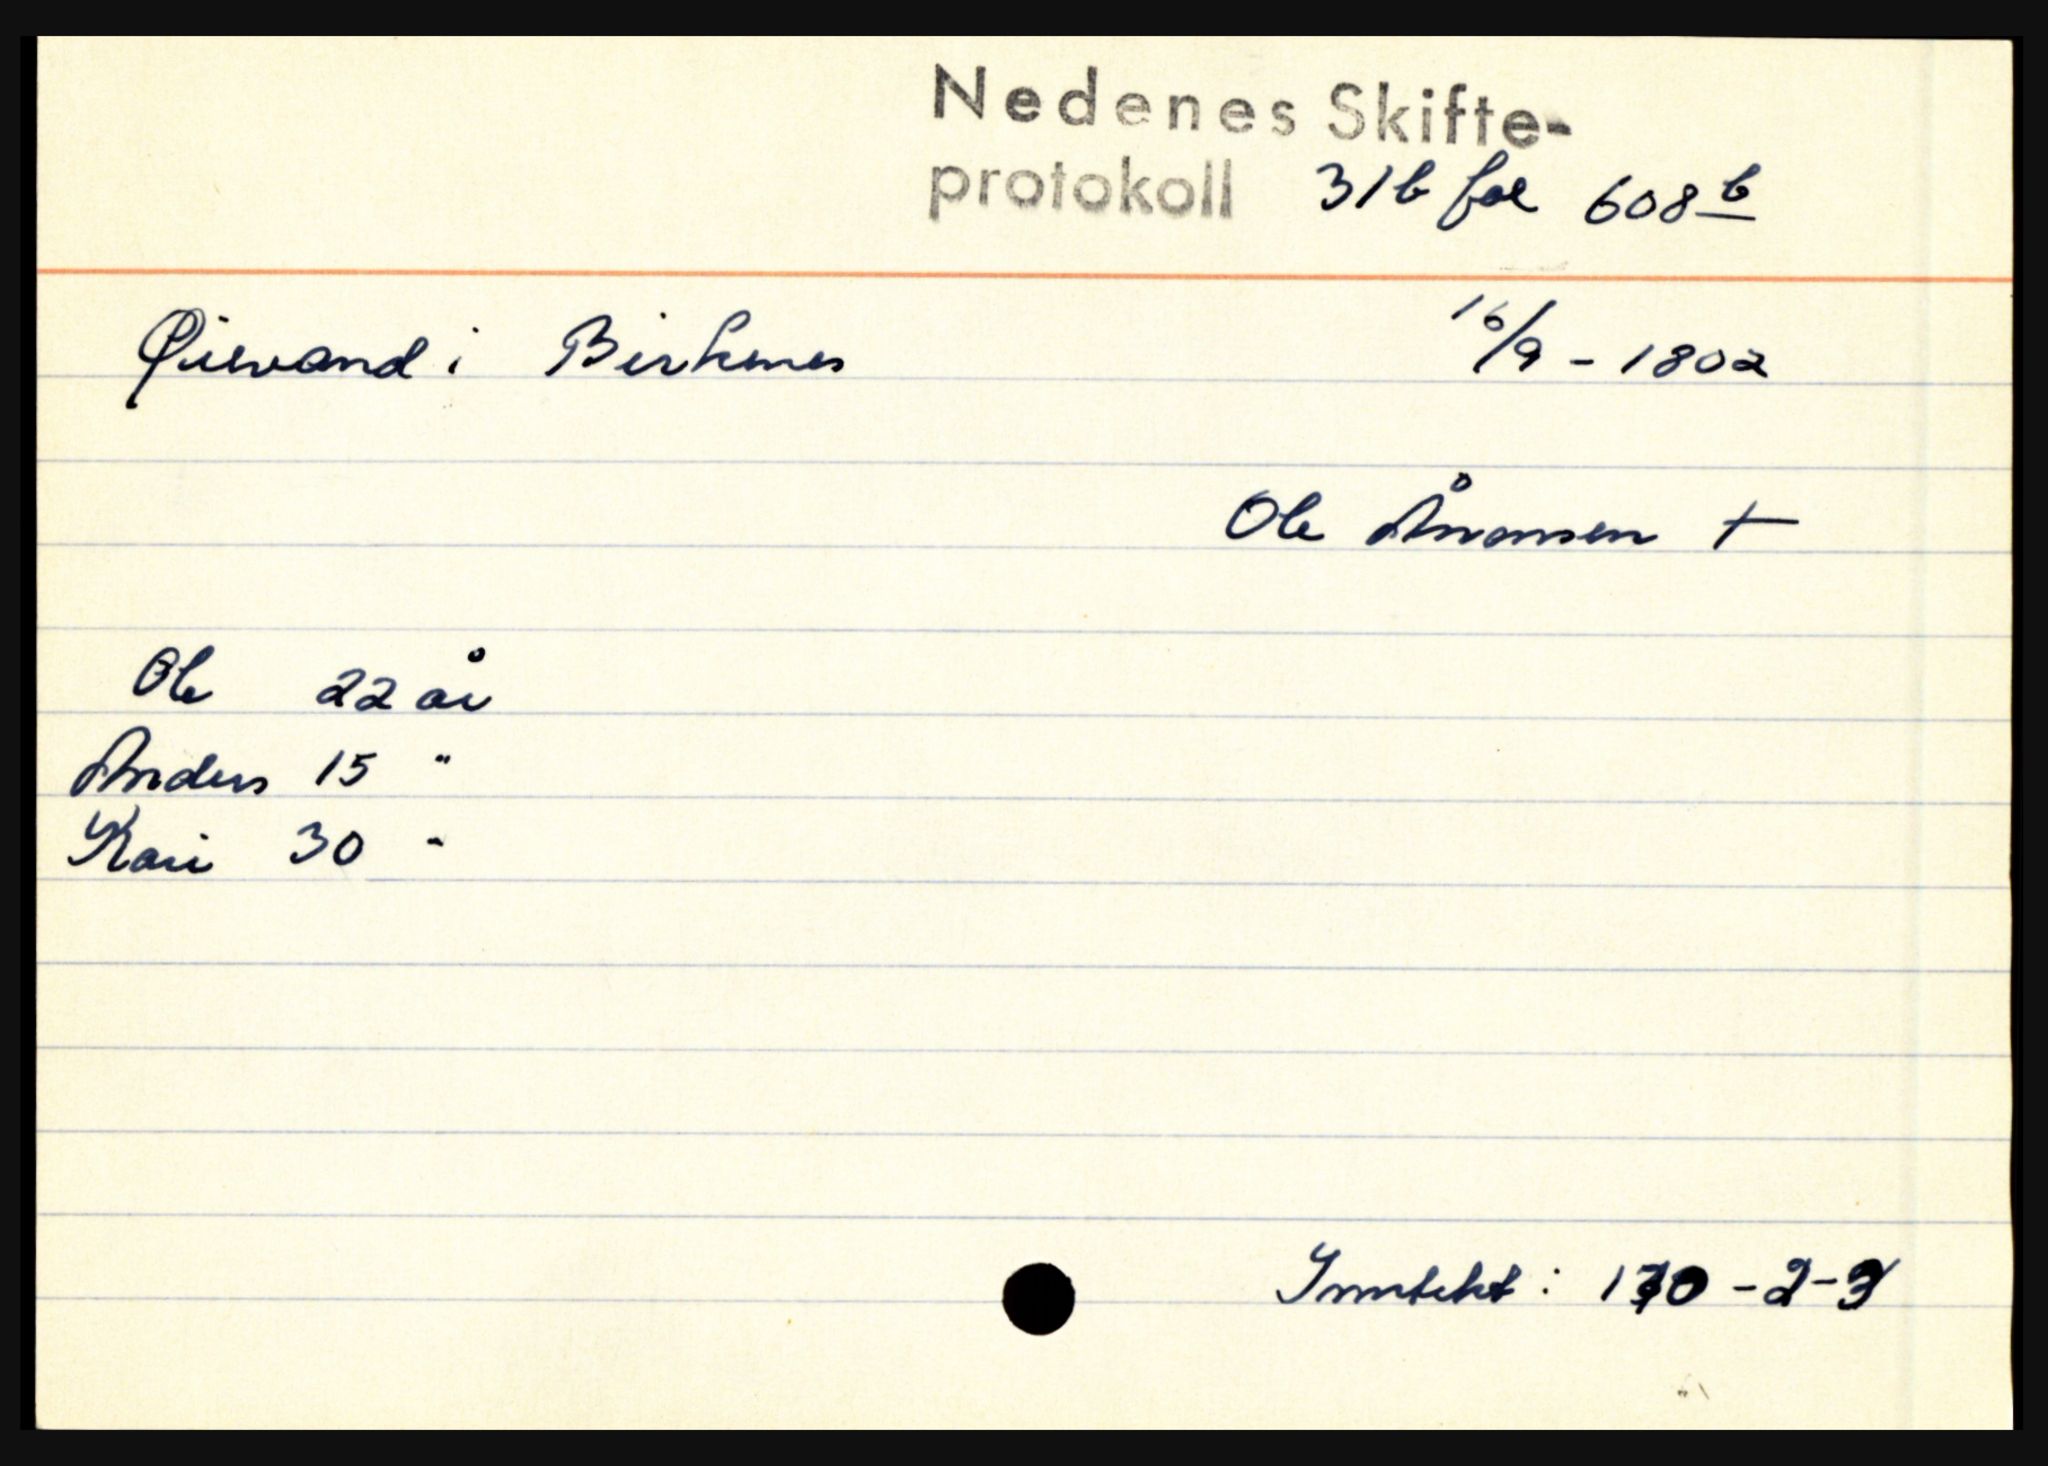 Nedenes Skifte-
protokoll 31b fol 608 b
Øievand i Birkenes 16/9 - 1802
Ole Ånonsen +
Ole 22 år
Anders 15 "
Kari 30 "
Inntekt: -2-3